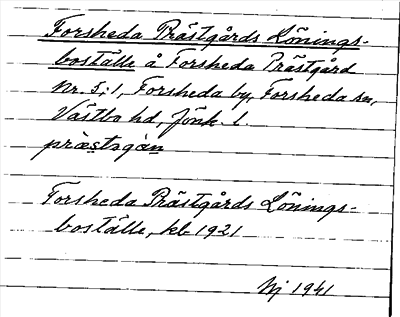 Forsheda Prästgårds Lönings-
boställe å Forsheda Prästgård
Nr. 5:1, Forsheda by, Forsheda sn,
Västbo hd, Jönk. l.
præstagàn
Forsheda Prästgårds Lönings-
boställe, kb 1921
Nj 1941